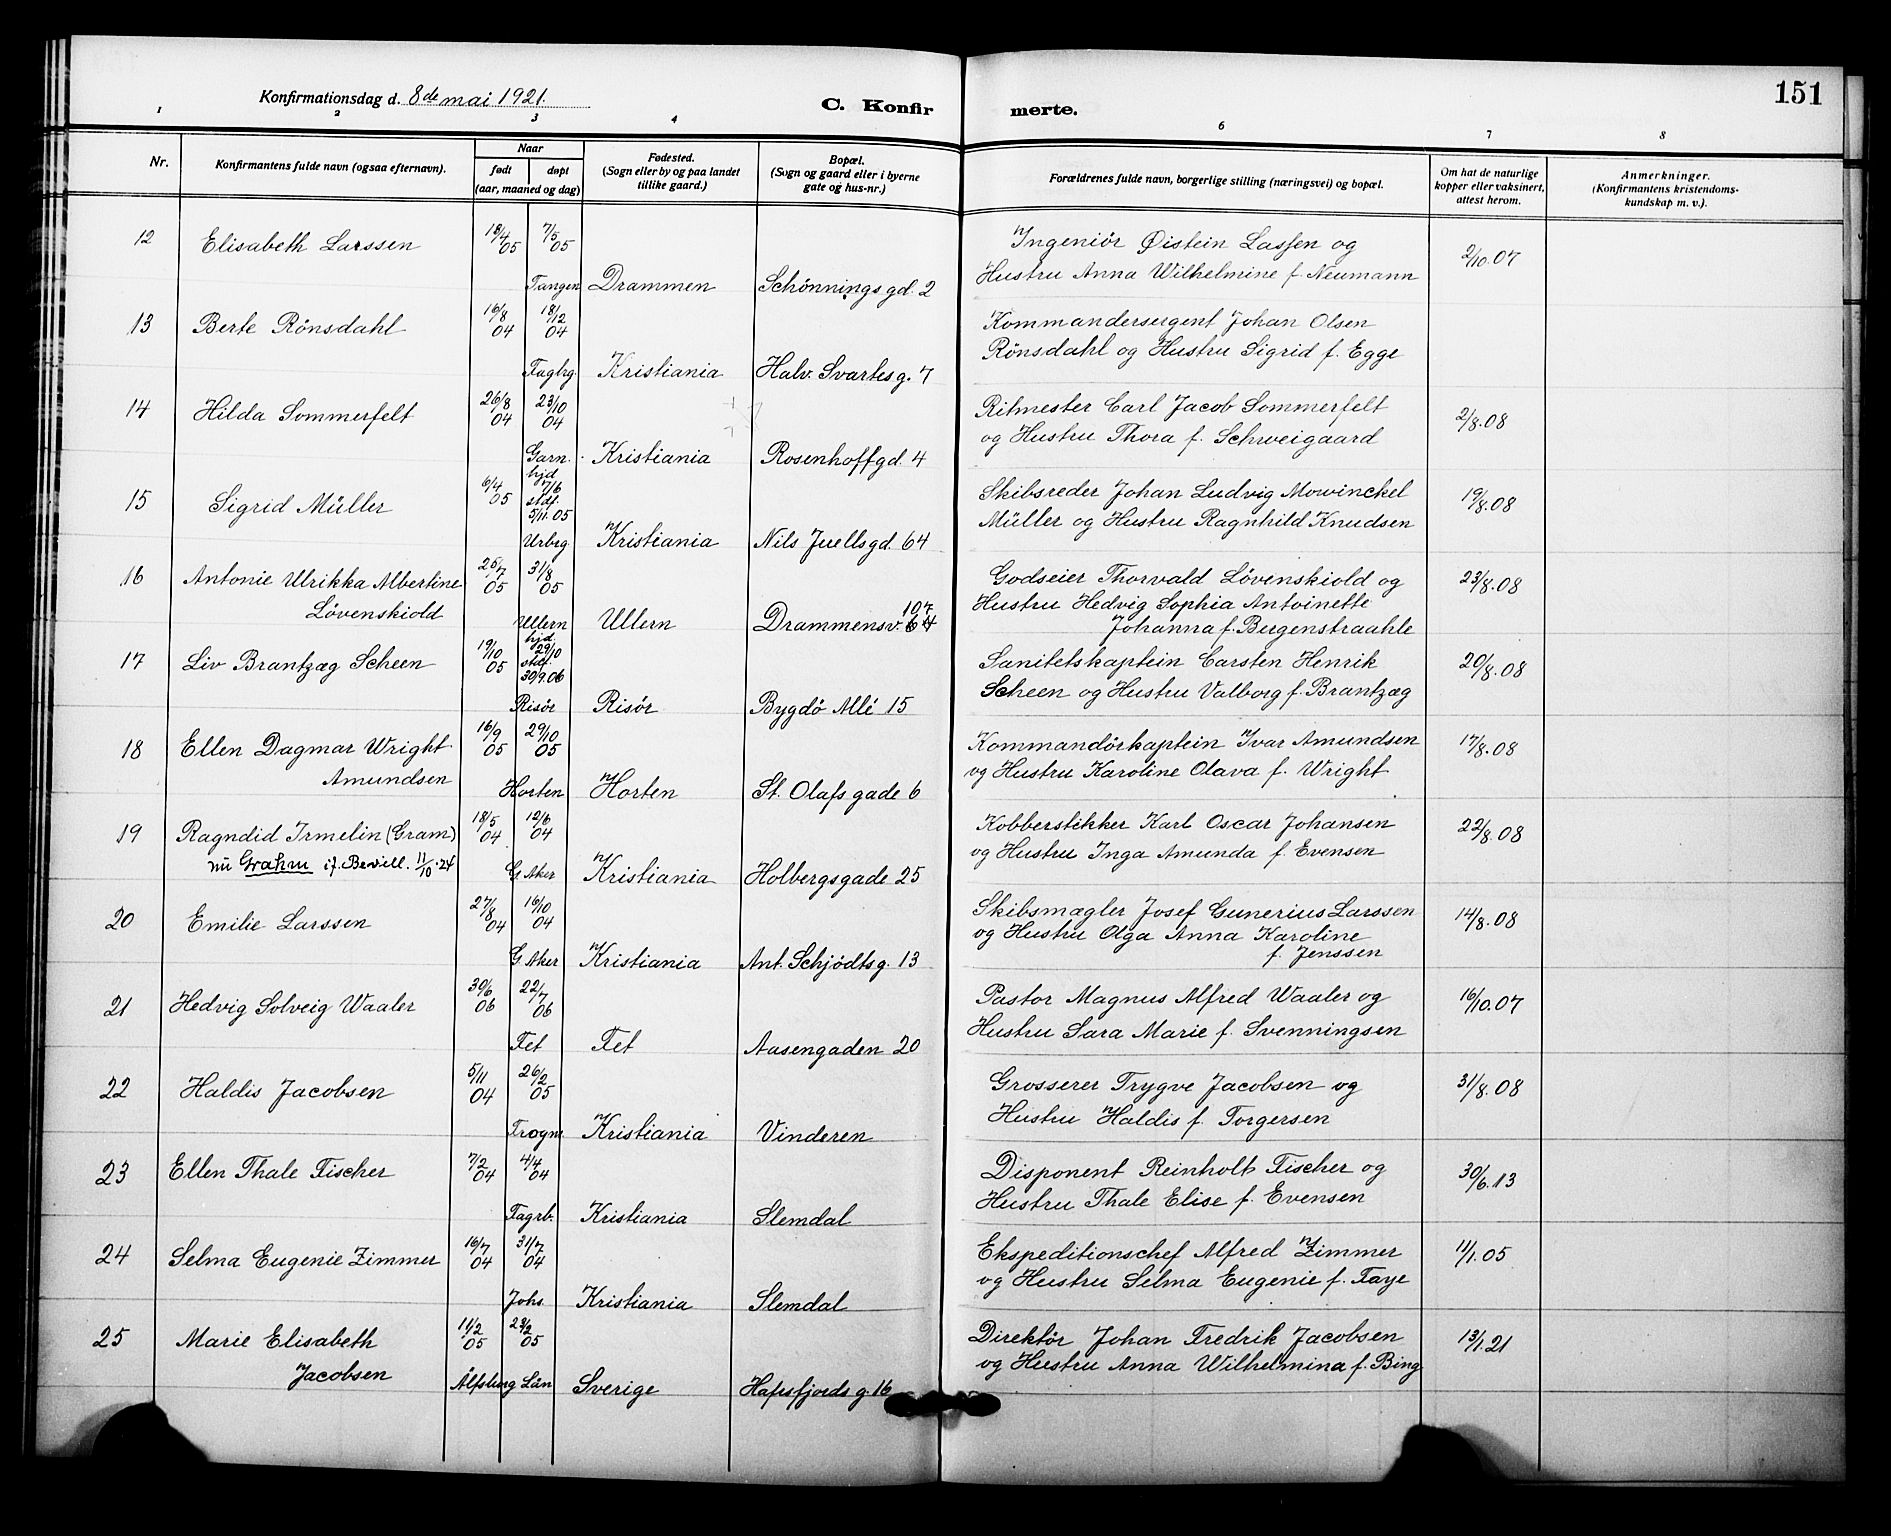 151
Konfirmationsdag d. 8de mai 1921.
C. Konfirmerte.
1 2 3 4 5 6 7 8
Nr.
Konfirmantens fulde navn (ogsaa efternavn).
Naar
født døpt
(aar, maaned og dag)
Fødested.
(Sogn eller by og paa landet
tillike gaard.)
Bopæl.
(Sogn og gaard eller i byerne
gate og hus-nr.)
Forældrenes fulde navn, borgerlige stilling (næringsvei) og bopæl.
Om hat de naturlige
kopper eller vaksinert,
attest herom.
Anmerkninger.
(Konfirmantens kristendoms-
kundskap m. v.).
12 Elisabeth Larssen 18/4 05 7/5 05 Ingeniør Øistein Lassen og 2/10.07
Tangen Drammen Schönnings gd. 2 Hustru Anna Wilhelmine f. Neumann
13 Berte Rönsdahl 16/8 04 18/12 04 Kommandersergent Johan Olsen
Fagbrg. Kristiania Halv. Svartes g. 7 Rönsdahl og Hustru Sigrid f. Egge
14 Hilda Sommerfelt 26/8 04 23/10 04 Ritmester Carl Jacob Sommerfelt 2/8.08
Garn. Kristiania Rosenhoffgd. 4 og Hustru Thora f. Schweigaard
15 Sigrid Müller 6/4 05 hjd. 7/6 stdf. 5/11.05 Skibsreder Johan Ludvig Mowinckel 19/8.08
Urbrg. Kristiania Nils Juellsgd. 64 Müller og Hustru Ragnhild Knudsen
16 Antonie Ulrikka Albertine 25/7 05 31/8 05 Godseier Thorvald Lövenskiold og 23/8.08
Lövenskiold Ullern Ullern Drammensv. 64 107 Hustru Hedvig Sophia Antoinette
Johanna f. Bergenstraahle
17 Liv Brantzæg Scheen 19/10 05 hjd. 29/10 stdf. 30/9.06 Sanitetskaptein Carsten Henrik 20/8.08
Risör Risör Bygdö Allé 15 Scheen og Hustru Valborg f. Brantzæg
18 Ellen Dagmar Wright 16/9 05 29/10 05 Kommandörkaptein Ivar Amundsen 17/8.08
Amundsen Horten Horten St. Olafs gade 6 og Hustru Karoline Olava f. Wright
19 Ragndid Irmelin (Gram) 18/5 04 12/6 04 Kobberstikker Karl Oscar Johansen 22/8.08
nu Grahm if. Bevill. 11/10.24 G. Aker Kristiania Holbergsgade 25 og Hustru Inga Amunda f. Evensen
20 Emilie Larssen 27/8 04 16/10 04 Skibsmægler Josef Gunerius Larssen 14/8.08
G. Aker Kristiania Ant. Schjödtsg. 13 og Hustru Olga Anna Karoline
f. Jenssen
21 Hedvig Solveig Waaler 30/6 06 22/7 06 Pastor Magnus Alfred Waaler og 16/10.07
Fet Fet Aasengaden 20 Hustru Sara Marie f. Svenningsen
22 Haldis Jacobsen 5/11 04 26/2 05 Grosserer Trygve Jacobsen og 31/8.08
Frogn. Kristiania Vinderen Hustru Haldis f. Torgersen
23 Ellen Thale Fischer 7/2 04 4/4 04 Disponent Reinholt Fischer og 30/6.13
Fagrb. Kristiania Slemdal Hustru Thale Elise f. Evensen
24 Selma Eugenie Zimmer 16/7 04 31/7 04 Ekspeditionschef Alfred Zimmer 11/1.05
Johs. Kristiania Slemdal og Hustru Selma Eugenie f. Faye
25 Marie Elisabeth 11/2 05 05 Direktör Johan Fredrik Jacobsen 13/1.21
Jacobsen Älfsborg Län Sverige Hafrsfjords g. 16 og Hustru Anna Wilhelmina f. Bing